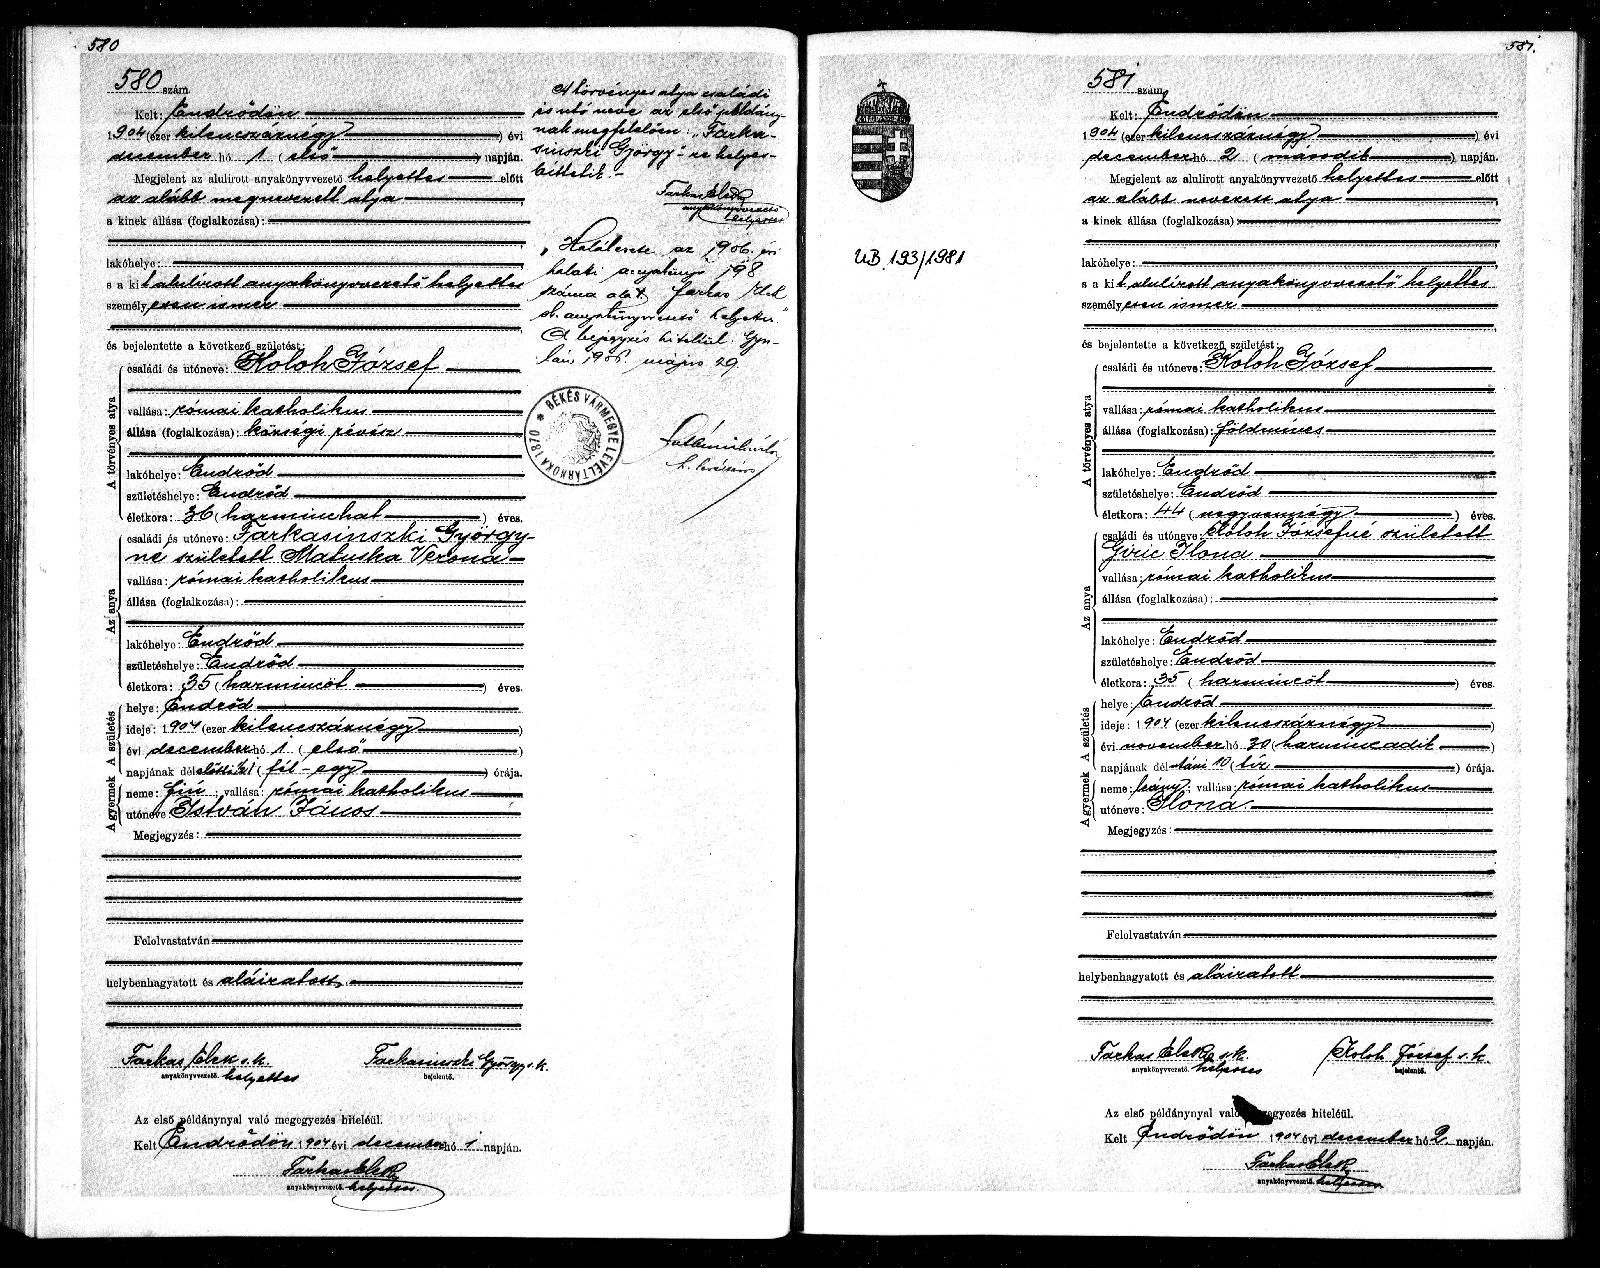 580
580 szám.
Kelt: Endrődön
1904 (ezer kilencszáznégy) évi
december hó 1 (első) napján.
Megjelent az alulirott anyakönyvvezető helyettes előtt
az alább megnevezett atya
a kinek állása (foglalkozása):
lakóhelye:
s a kit alulírott anyakönyvvezető helyettes
személyesen ismer
és bejelentette a következő születést:
A törvényes atya
családi és utóneve: Koloh József
vallása: római katholikus
állása (foglalkozása): községi révész
lakóhelye: Endrőd
születéshelye: Endrőd
életkora: 36 (harminchat) éves.
Az anya
családi és utóneve: Farkasinszki György-
né született Matuska Verona
vallása: római katholikus
állása (foglalkozása):
lakóhelye: Endrőd
születéshelye: Endrőd
életkora: 35 (harmincöt) éves.
A születés
helye: Endrőd
ideje: 1904 (ezer kilencszáznégy)
évi december hó 1 (első)
napjának dél előtti ½1 (fél-egy) órája.
A gyermek
neme: fiú; vallása: római katholikus
utóneve: István János
Megjegyzés:
Felolvastatván
helybenhagyatott és aláiratott.
Farkas Elek s.k.
anyakönyvvezető. helyettes
Farkasinszki György s.k.
bejelentő.
Az első példánynyal való megegyezés hiteléül.
Kelt Endrődön 1904 évi december hó 1 napján.
Farkas Elek
anyakönyvvezető. helyettes
A törvényes atya családi
és utóneve az első példány-
nak megfelelően "Farka-
sinszki György"-re helyes-
bíttetik.-
Farkas Elek
anyakönyvvezető
helyettes
"Halálesete az 1906. évi
halotti anyakönyv 198
száma alatt Farkas Elek
anyakönyvvezető helyettes"
A bejegyzés hiteléül. Gyu-
lán, 1906. május 29
BÉKÉS VÁRMEGYE LEVÉLTÁRNOKA 1870
581.
581 szám
Kelt: Endrődön
1904 (ezer kilencszáznégy) évi
december hó 2 (második) napján.
Megjelent az alulirott anyakönyvvezető helyettes előtt
az alább nevezett atya
a kinek állása (foglalkozása):
lakóhelye:
s a kit alulírott anyakönyvvezető helyettes
személyesen ismer
és bejelentette a következő születést:
A törvényes atya
családi és utóneve: Koloh József
vallása: római katholikus
állása (foglalkozása): földmíves
lakóhelye: Endrőd
születéshelye: Endrőd
életkora: 44 (negyvennégy) éves.
Az anya
családi és utóneve: Koloh Józsefné született
Giric Ilona
vallása: római katholikus
állása (foglalkozása):
lakóhelye: Endrőd
születéshelye: Endrőd
életkora: 35 (harmincöt) éves.
A születés
helye: Endrőd
ideje: 1904 (ezer kilencszáznégy)
évi november hó 30 (harmincadik)
napjának dél utáni 10 (tíz) órája.
A gyermek
neme: leány; vallása: római katholikus
utóneve: Ilona.
Megjegyzés:
Felolvastatván
helybenhagyatott és aláiratott
Farkas Elek s.k.
anyakönyvvezető. helyettes
Koloh József s.k.
bejelentő.
Az első példánynyal való megegyezés hiteléül.
Kelt Endrődön 1904 évi december hó 2. napján.
Farkas Elek
anyakönyvvezető. helyettes
UB. 193/1981